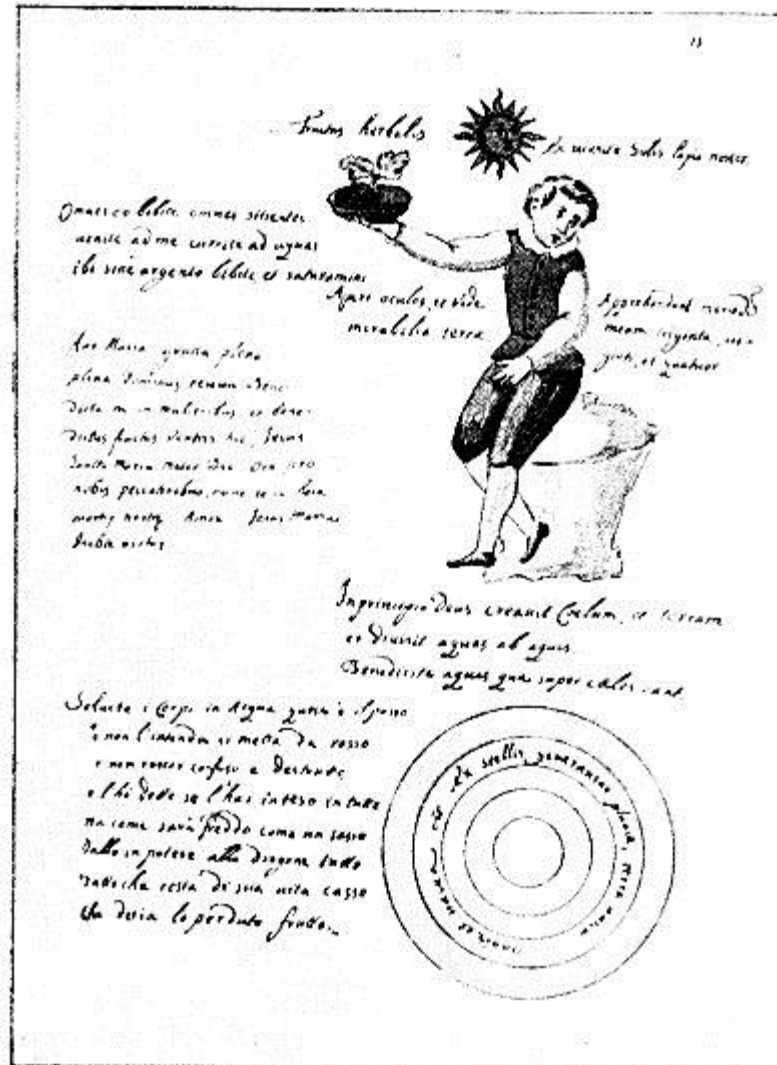 13
Fructus herbalis
Ex semine Solis lapis noster
Omnes bibite omnes sitientes
venite ad me currite ad aquas
ibi sine argento bibite et saturamini
Aperi oculos, et vide
mirabilia terra
Apprehendent
meam viginti
et quatuor
Ave Maria gratia plena
plena Dominus tecum Bene
dicta in mulieribus, et bene
dictus fructus ventris tui, Jesus
Sancta Maria Mater Dei Ora pro
nobis peccatoribus, nunc et in hora
mortis Amen Jesus Maria
In principio Deus creavit Coelum, et terram
et divisit aquas ab aquis
Benedicite aquas qua super celos sunt
Solvete i Corpi in Acqua
e non l'intende si metta da
e non confuso e destrutto
se l'hai inteso in tutto
ma come sarà freddo come un sasso
Dallo in potere alla dragone tutto
resta di sua vita casso
lo perduto frutto
Ex stellis, generantur pluvia,